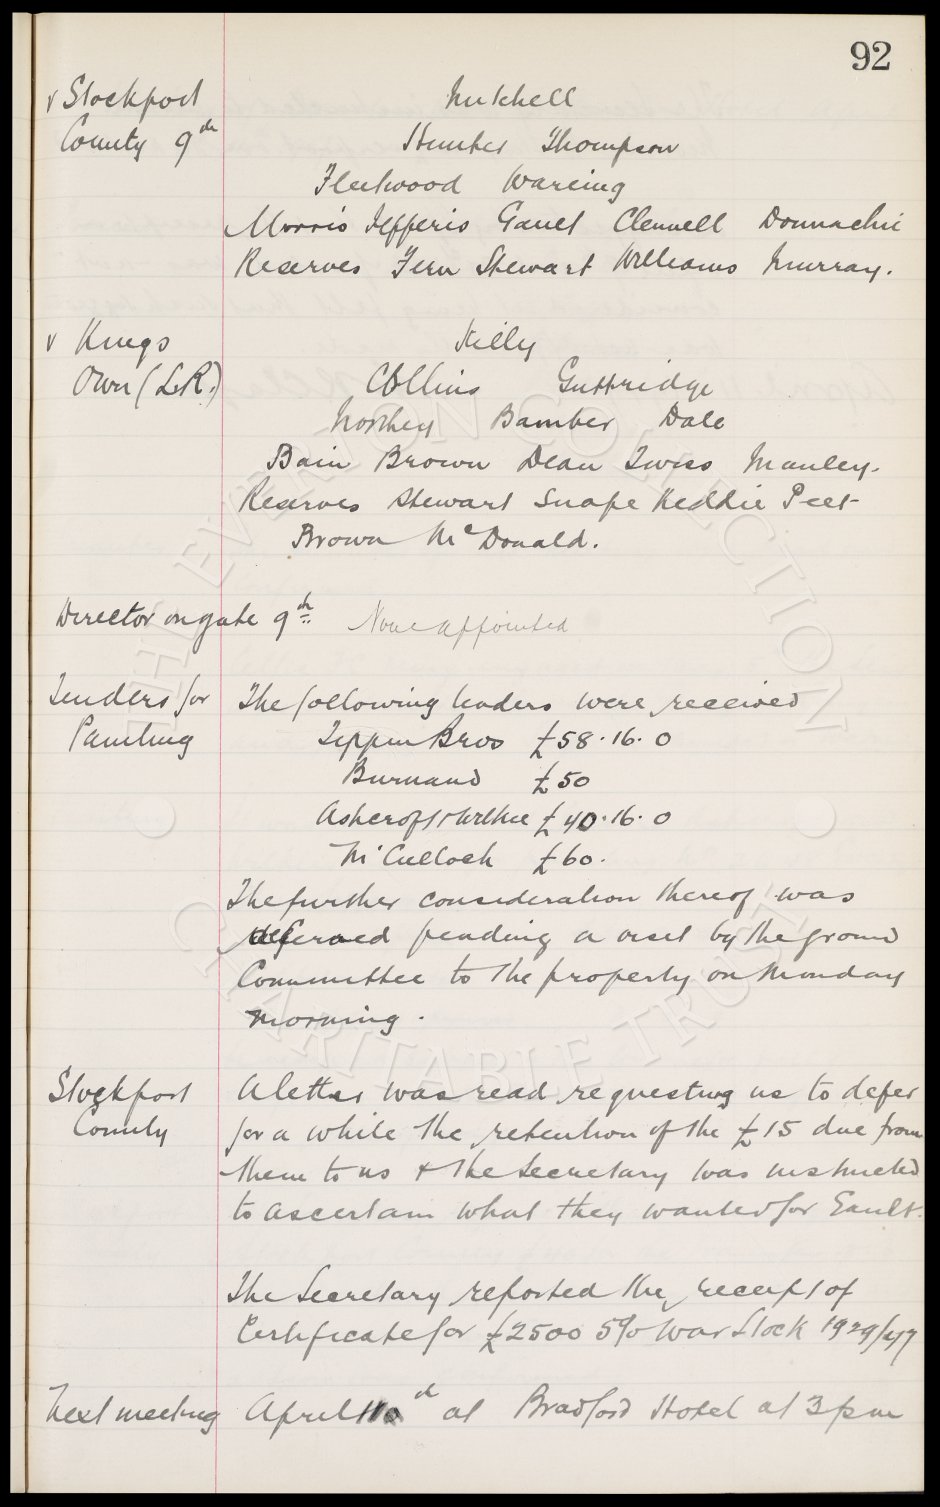 92
v Stockport Mitchell
County 9th Hunter Thompson
Fleetwood Wareing
Morris Jefferis Gault Clennell Donnachie
Reserves Fern Stewart Williams Murray.
v Kings Kelly
Own (L.R.) Collins Guttridge
Northey Bamber Dale
Bain Brown Dean Twiss Manley.
Reserves Stewart Snape Keddie Peet
Brown McDonald.
Director on gate 9th None appointed
Tenders for The following tenders were received
Painting Tippin Bros £58.16.0
Burnand £50
Ashcroft & Wilkie £40.16.0
McCulloch £60.
The further consideration thereof was
deferred pending a visit by the ground
Committee to the property on Monday
morning.
Stockport A letter was read requesting us to defer
County for a while the retention of the £15 due from
them to us & the Secretary was instructed
to ascertain what they wanted for Gault.
The Secretary reported the receipt of
Certificate for £2500 5% War Stock 1929/47
Next meeting April th at Bradford Hotel at 3pm
THE EVERTON COLLECTION
CHARITABLE TRUST